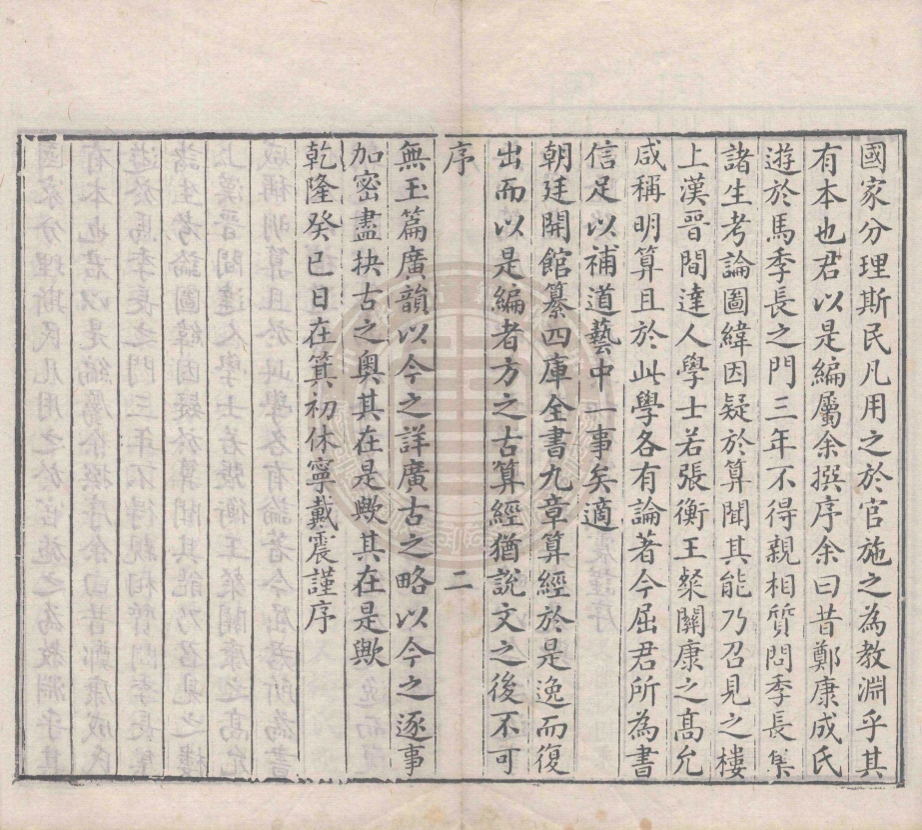 國家分理斯民凡用之於官施之為教淵乎其
有本也君以是編屬余撰序余曰昔鄭康成氏
遊於馬季長之門三年不得親相質問季長集
諸生考論圖緯因疑於算聞其能乃召見之樓
上漢晉間達人學士若張衡王粲關康之高允
咸稱明算且於此學各有論著今屈君所為書
信足以補道藝中一事矣適
朝廷開館纂四庫全書九章算經於是逸而復
出而以是編者方之古算經猶說文之後不可
序
二
無玉篇廣韻以今之詳廣古之略以今之逐事
加密盡抉古之奧其在是歟其在是歟
乾隆癸巳日在箕初休寧戴震謹序